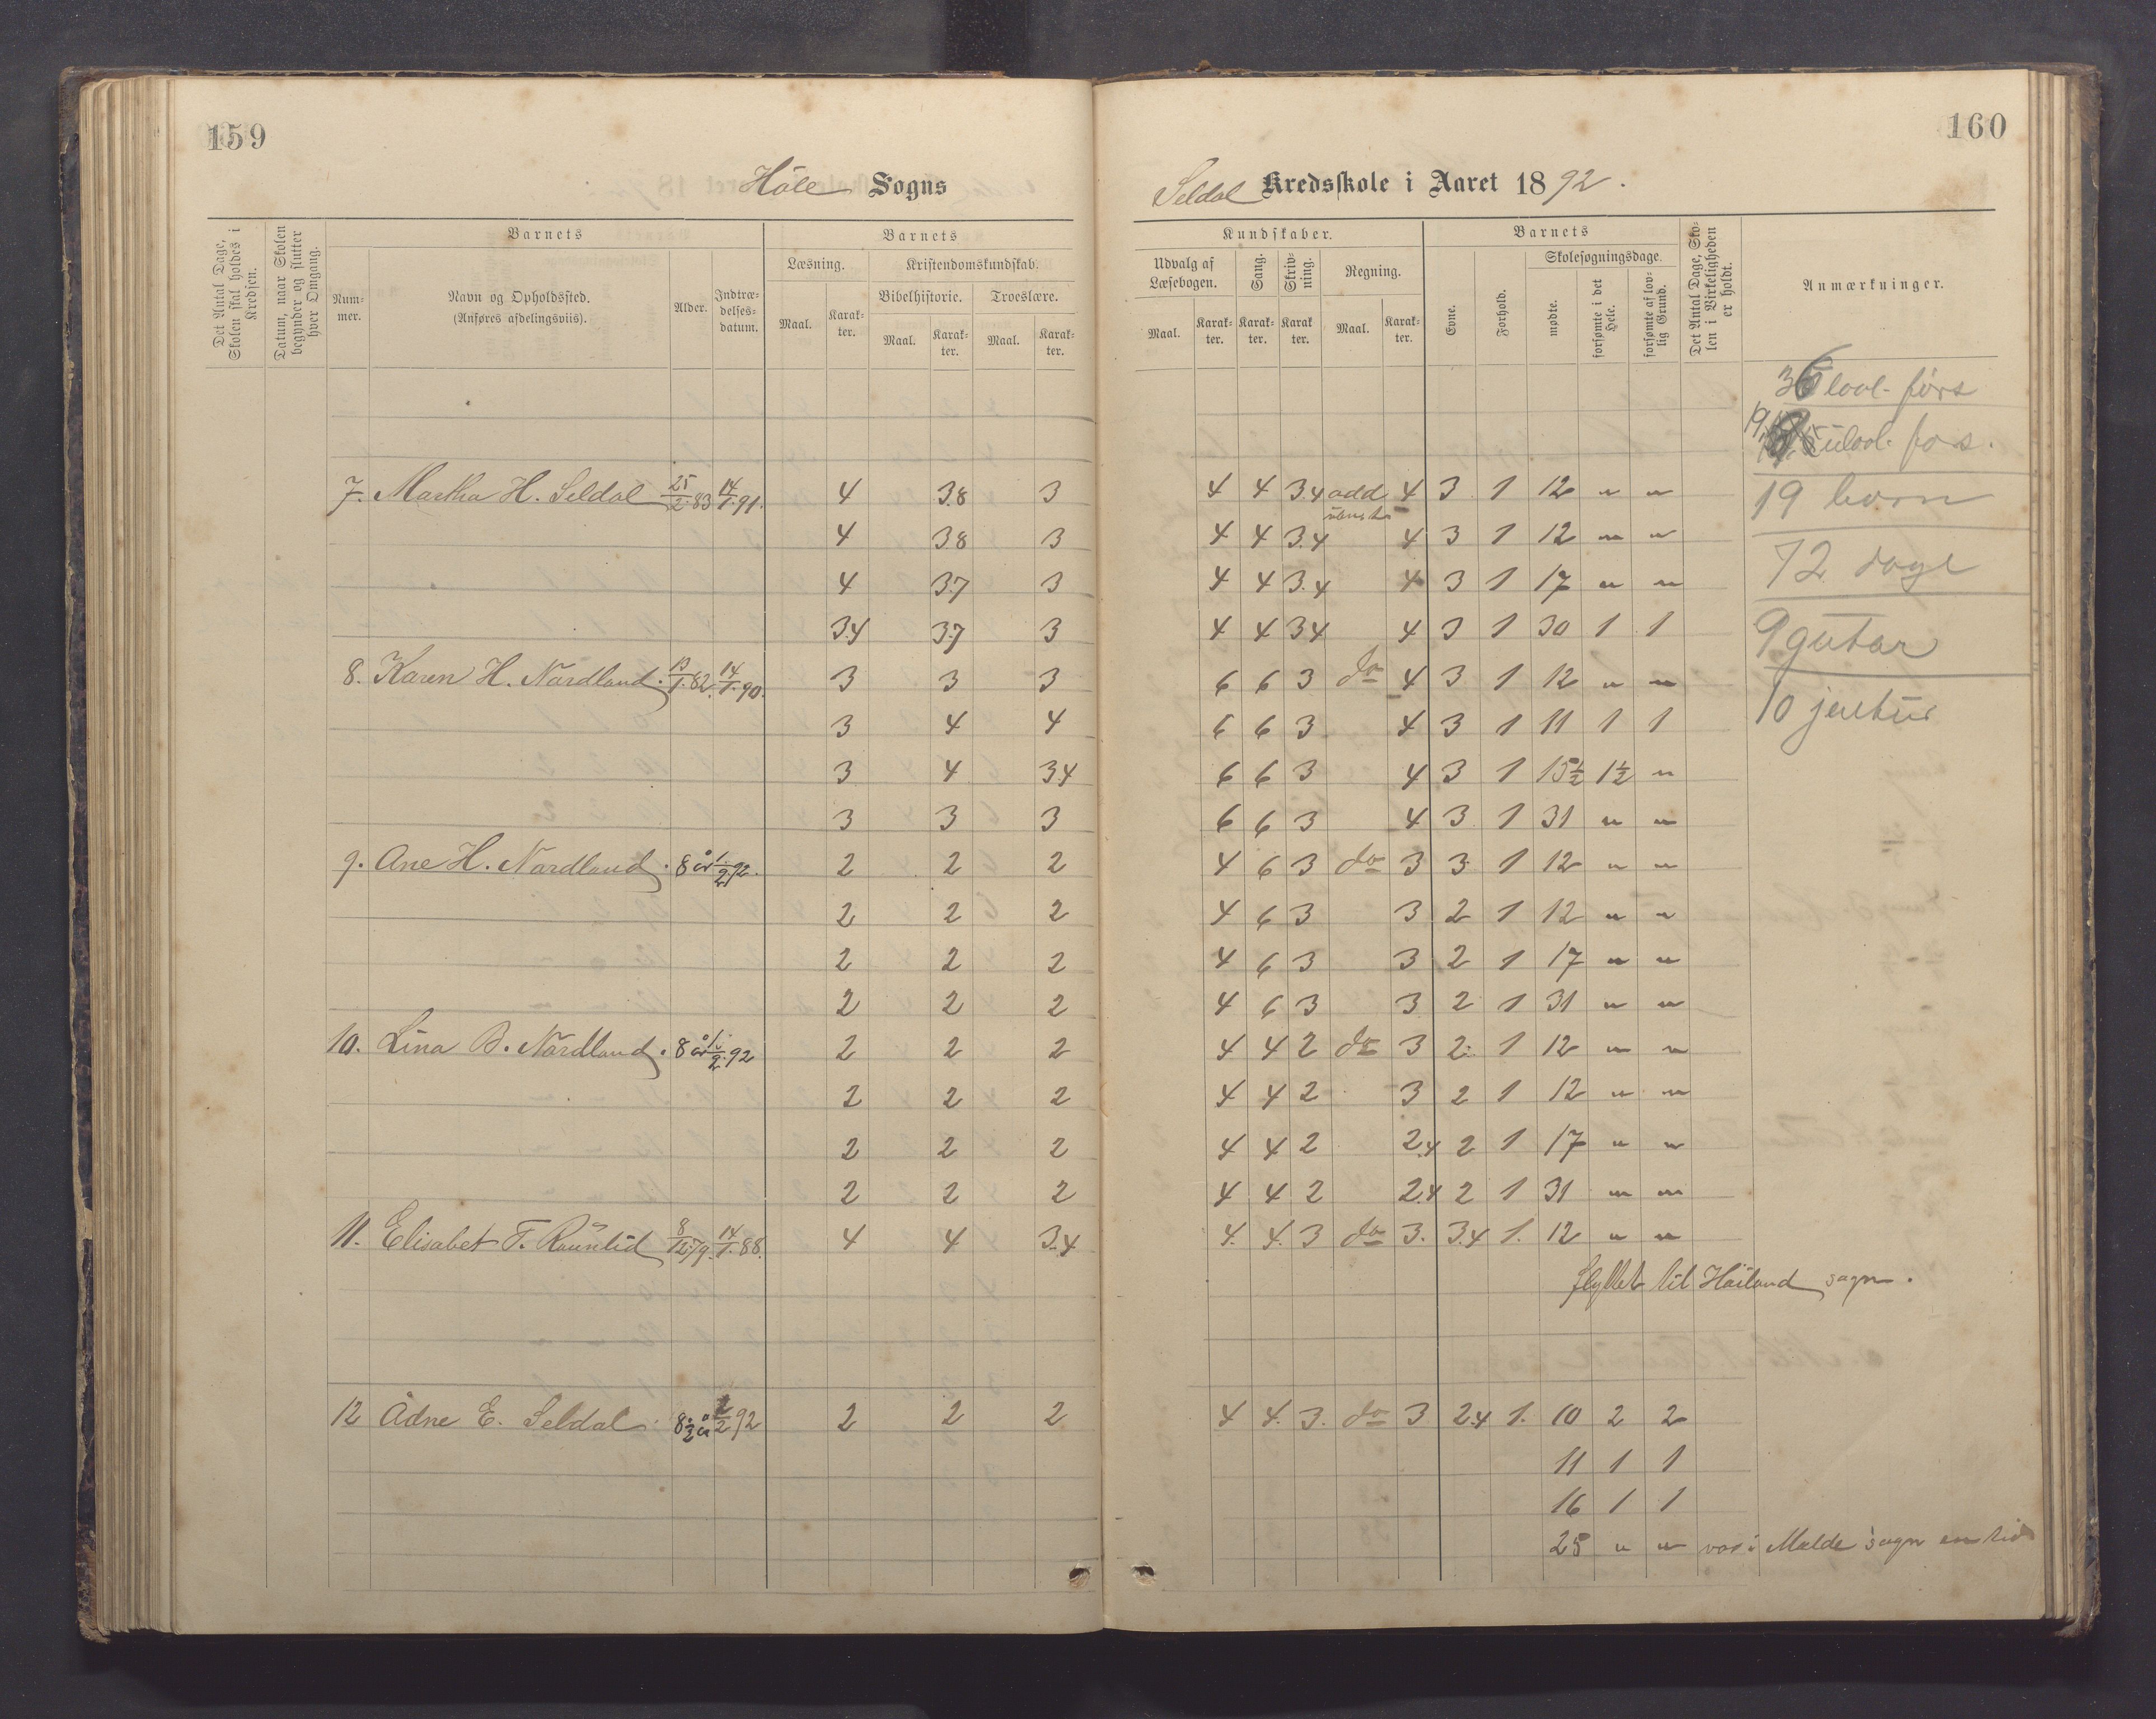 159
160
Höle Sogns
Seldal Kredsskole i Aaret 1892.
Det Antal Dage, Skolen skal holdes i Kredsen.
Datum, naar Skolen begynder og slutter hver Omgang.
Barnets
Num-mer.
Navn og Opholdssted. (Anføres afdelingsviis).
Alder.
Indtræ-delses-datum.
Barnets
Læsning.
Maal.
Karak-ter.
Kristendomskundskab.
Bibelhistorie.
Maal.
Karak-ter.
Troeslære.
Maal.
Karak-ter.
Kundskaber.
Udvalg af Læsebogen.
Maal.
Karak-ter.
Sang.
Karak-ter.
Skriv-ning.
Karak ter.
Regning.
Maal.
Karak-ter.
Barnets
Evne.
Forhold.
Skolesøgningsdage.
mødte.
forsømte i det Hele.
forsømte af lov-lig Grund.
Det Antal Dage, Sko-len i Virkeligheden er holdt.
Anmærkninger.
7. Martha H. Seldal 25/2.83 14/1.91. 4 3.8 3 4 4 3.4 add 4 3 1 12 " "
4 3.8 3 4 4 3.4 4 3 1 12 " "
4 3.7 3 4 4 3.4 4 3 1 17 " "
3.4 3.7 3 4 4 3.4 4 3 1 30 1 1
8. Karen H. Nordland. 13/1.82. 14/1.90. 3 3 3 6 6 3 do 4 3 1 12 " "
3 4 4 6 6 3 4 3 1 11 1 1
3 4 3.4 6 6 3 4 3 1 15½ 1½ "
3 3 3 6 6 3 4 3 1 31 " "
9. Ane H. Nordland. 8 år 1/2.92. 2 2 2 4 6 3 do 3 3 1 12 " "
2 2 2 4 6 3 3 2 1 12 " "
2 2 2 4 6 3 3 2 1 17 " "
2 2 2 4 6 3 3 2 1 31 " "
10. Lina B. Nordland. 8 år 1/2.92 2 2 2 4 4 2 do 3 2 1 12 " "
2 2 2 4 4 2 3 2 1 12 " "
2 2 2 4 4 2 2.4 2 1 17 " "
2 2 2 4 4 2 2.4 2 1 31 " "
11. Elisabet T. Raunlid 8/12.79. 14/1.88. 4 4 3.4 4. 4. 3 do 3. 3.4 1. 12 " "
flyttet til Høiland sogn.
12 Ådne E. Seldal 8½ å 1/2 92 2 2 2 4 4. 3. do 3 2.4 1. 10 2 2
11 1 1
16 1 1
25 " " var i Målde sogn en tid
36 lovl. førs
ulovl. fors.
19 born
72 dage
9 gutar
10 jentur